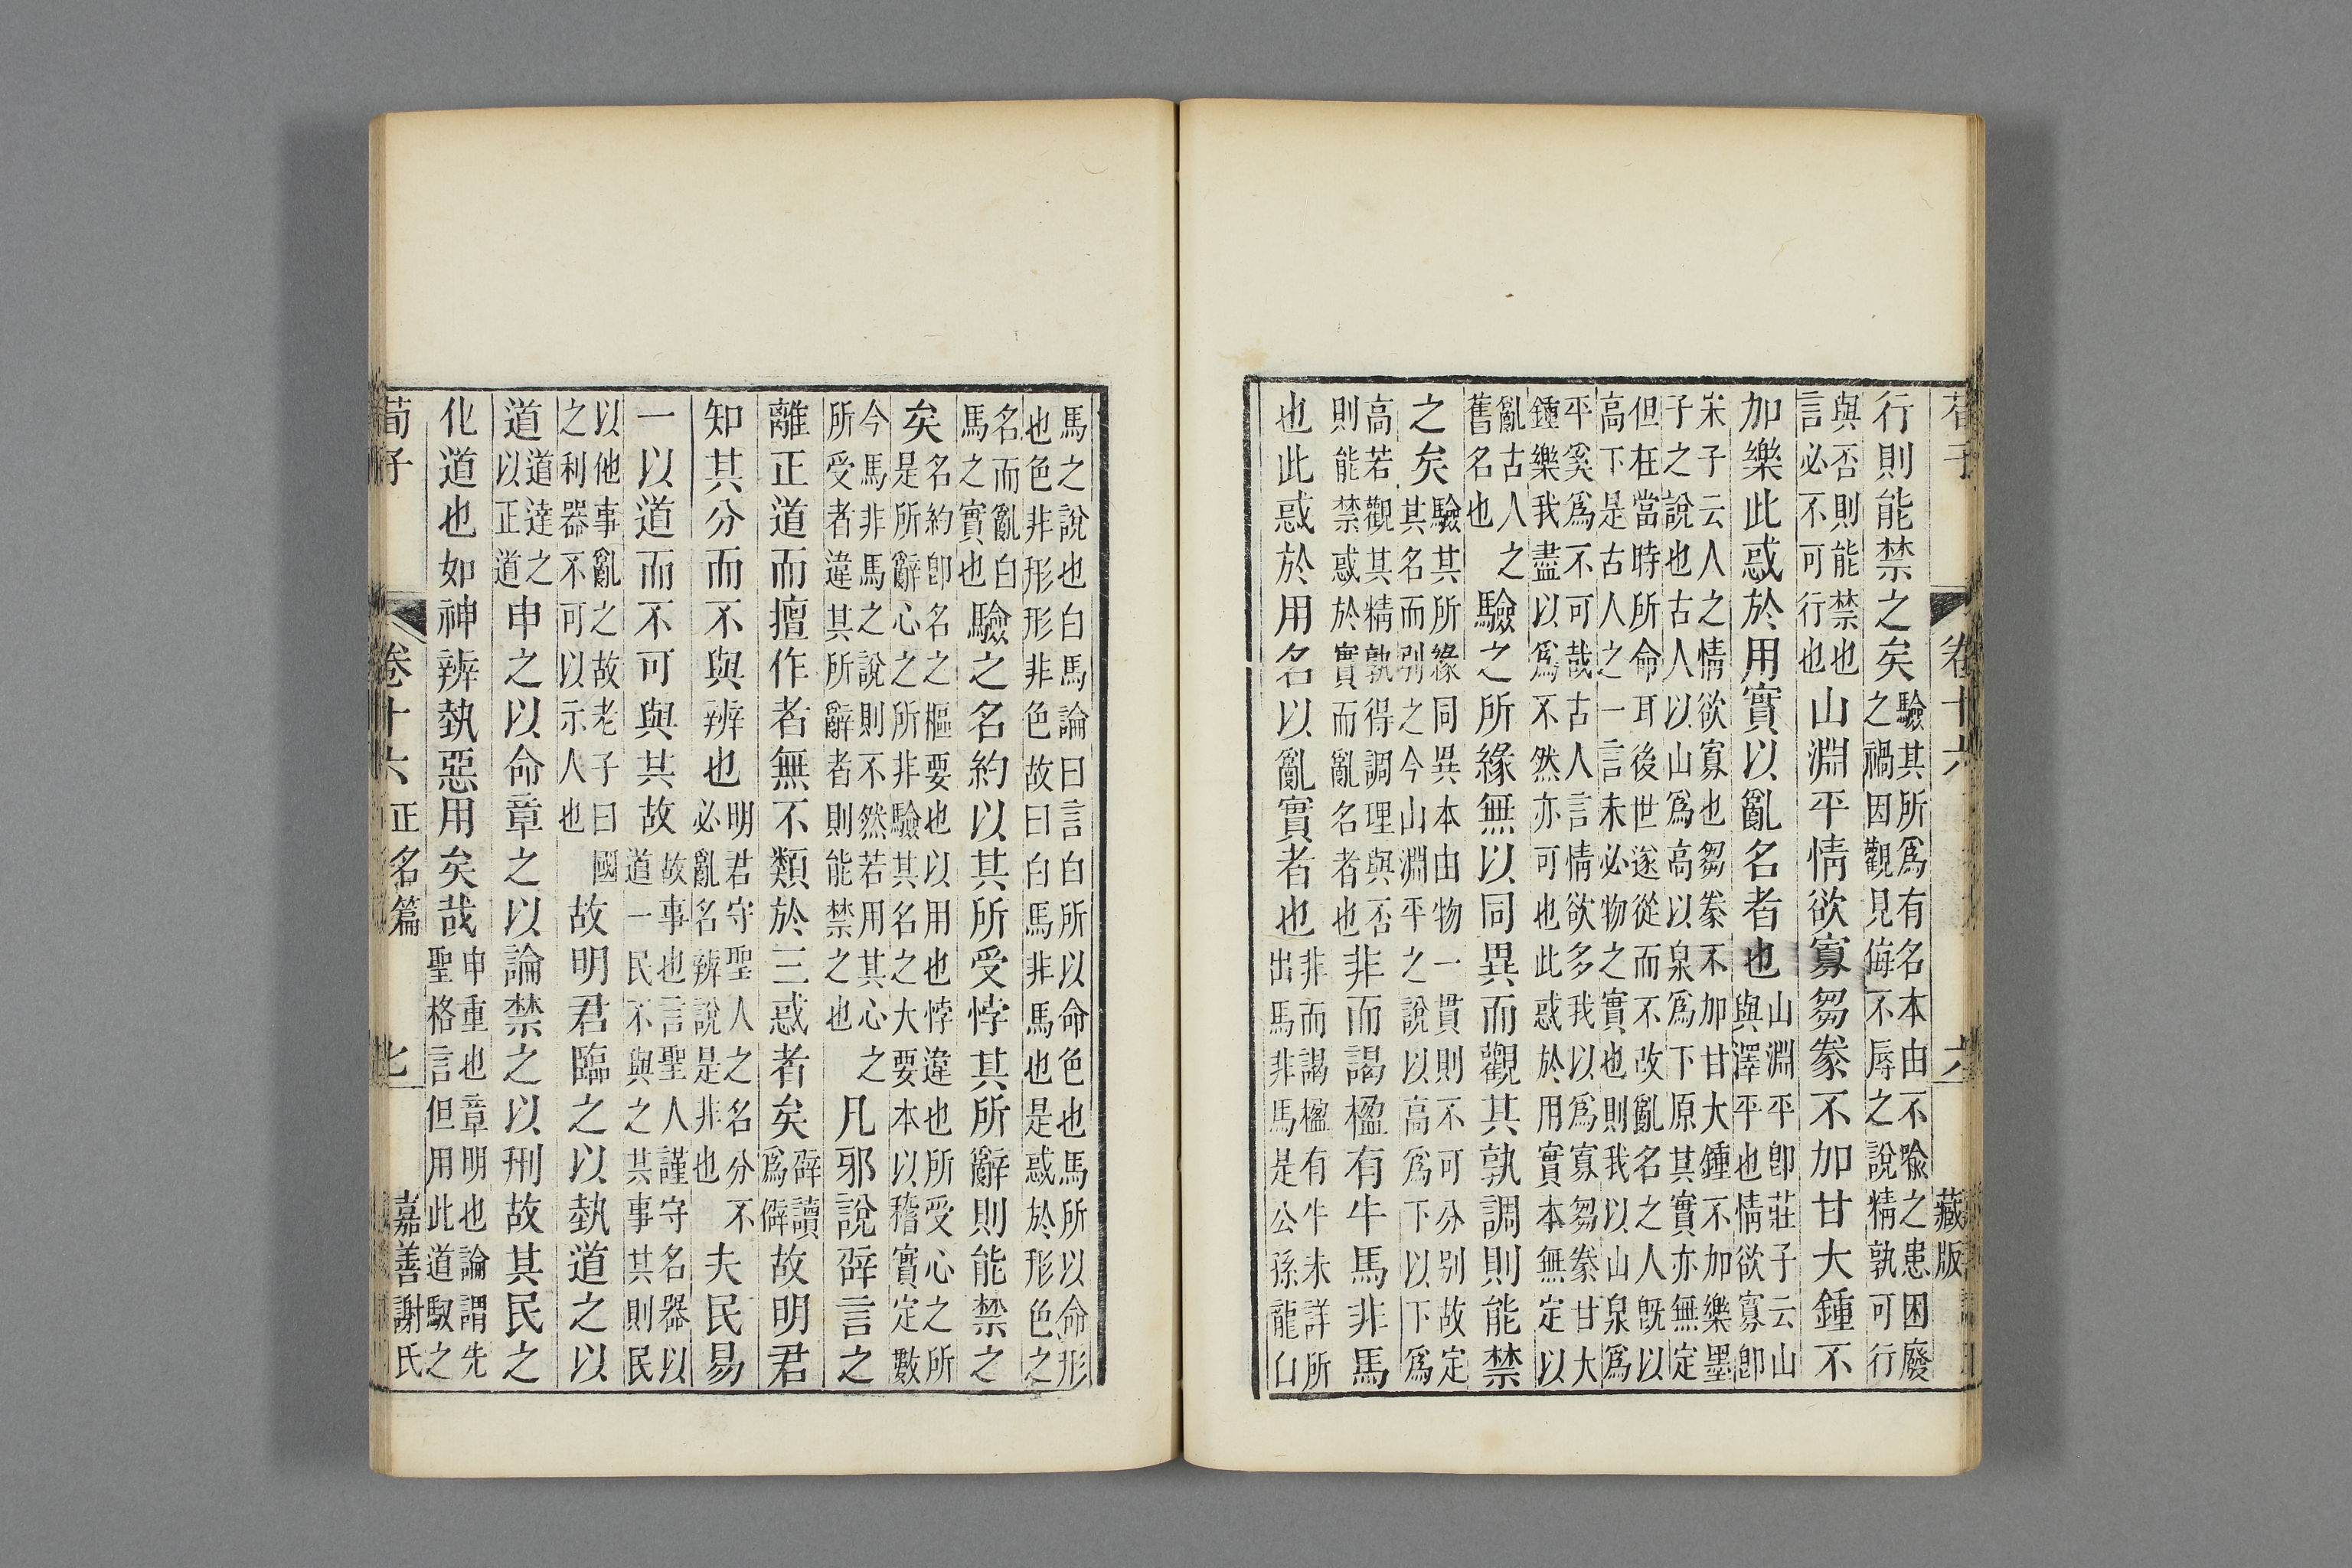 荀子 卷十六 六 藏版
行則能禁之矣驗其所爲有名本由不喻之患困廢之禍因觀見侮不辱之說精孰可行
與否則能禁也言必不可行也山淵平情欲寡芻豢不加甘大鍾不
加樂此惑於用實以亂名者也山淵平卽莊子云山與澤平也情欲寡卽
宋子云人之情欲寡也芻豢不加甘大鍾不加樂墨子之說也古人以山爲高以泉爲下原其實亦無定
但在當時所命耳後世遂從而不改亂名之人旣以高下是古人之一言未必物之實也則我以山泉爲
平奚爲不可哉古人言情欲多我以爲寡芻豢甘大鍾樂我盡以爲不然亦可也此惑於用實本無定以
亂古人之舊名也驗之所緣無以同異而觀其孰調則能禁
之矣驗其所緣同異本由物一貫則不可分别故定其名而别之今山淵平之說以高爲下以下爲
高若觀其精孰得調理與否則能禁惑於實而亂名者也非而謁楹有牛馬非馬
也此惑於用名以亂實者也非而謁楹有牛未詳所出馬非馬是公孫龍白
馬之說也白馬論曰言白所以命色也馬所以命形也色非形形非色故曰白馬非馬也是惑於形色之
名而亂白馬之實也驗之名約以其所受悖其所辭則能禁之
矣名約卽名之樞要也以用也悖違也所受心之所是所辭心之所非驗其名之大要本以稽實定數
今馬非馬之說則不然若用其心之所受者違其所辭者則能禁之也凡邪說辟言之
離正道而擅作者無不類於三惑者矣辟讀爲僻故明君
知其分而不與辨也明君守聖人之名分不必亂名辨說是非也夫民易
一以道而不可與共故故事也言聖人謹守名器以道一民不與之共事共則民
以他事亂之故老子曰國之利器不可以示人也故明君臨之以埶道之以
道道達之以正道申之以命章之以論禁之以刑故其民之
化道也如神辨埶惡用矣哉申重也章明也論謂先聖格言但用此道馭之
荀子 卷十六 正名篇 七 嘉善謝氏